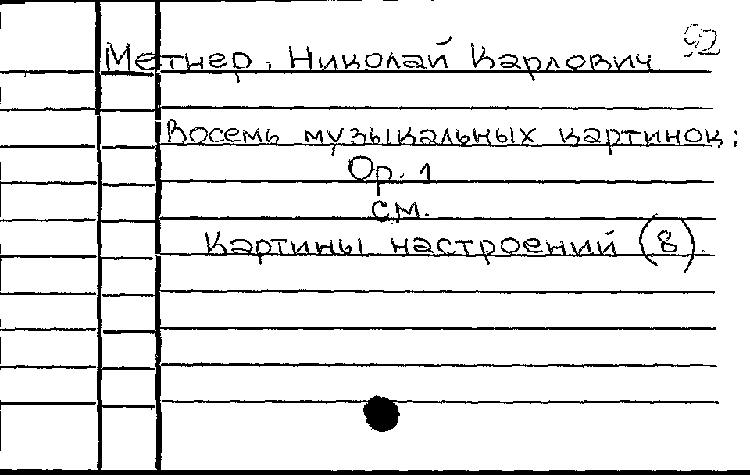 92
Метнер, Николай Карлович
Восемь музыкальных картинок;
Op. 1
см.
Картины настроений (8).